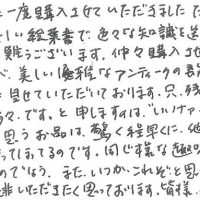 一度購入させていただきました
しい絵葉書で、色々な知識を
難うございます。仲々購入
べ、美しい優雅なアンティークの
見せていただいております。只、残
々。です。と申しますのは、"いいナァ"
思うお品は、驚く程早くに、他
ってしまってるのです。同じ様な趣
のでしょう。また、いつか、これぞと思
非いただきたく思っております。皆様